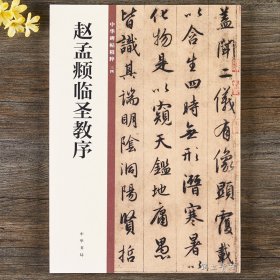 中华碑帖精粹
赵孟頫临圣教序
中华书局
盖闻二仪有像显覆载
以含生四时无形潜寒暑
化物是以窥天鉴地庸愚
皆识其端明阴洞阳贤哲